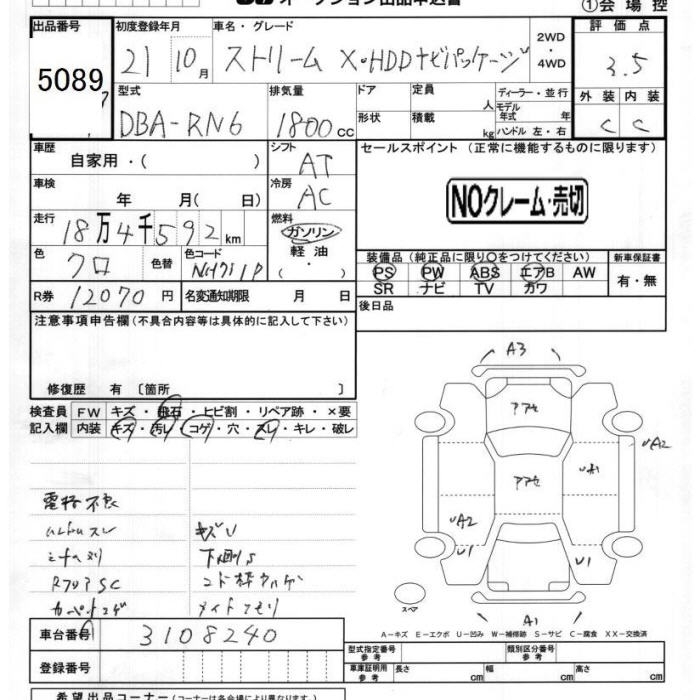 オークション出品申込書
①会場控
出品番号 初度登録年月 車名・グレード 2WD・4WD 評価点
5089 21 10月 ストリーム X・HDDナビパッケージ 3.5
型式 排気量 ドア 定員 人 ディーラー・並行 外装 内装
DBA-RN6 1800cc 形状 積載 kg モデル年式 年 ハンドル 左・右 C C
車歴 シフト セールスポイント (正常に機能するものに限ります)
自家用・( ) AT
車検 冷房 NOクレーム・売切
年 月( 日) AC
走行 燃料
18万4千592km ガソリン
軽油
( ・ )
色 色替 色コード 装備品(純正品に限り○をつけてください) 新車保証書
クロ PS PW ABS エアB AW 有・無
SR ナビ TV カワ
R券 12070円 名変通知期限 月 日 後日品
注意事項申告欄(不具合内容等は具体的に記入して下さい)
修復歴 有 〔箇所 〕
検査員 FW キズ・飛石・ヒビ割・リペア跡・×要
記入欄 内装 キズ・汚レ・コゲ・穴・スレ・キレ・破レ
A3
アアセ
A2
アアセ
A1
A2
U1
U1
電格不良
キズU
下回りS
RアシアSC
スペア
A1
A-キズ E-エクボ U-凹み W-補修跡 S-サビ C-腐食 XX-交換済
車台番号 3108240
型式指定番号 参考 類別区分番号 参考
登録番号
車庫証明用 参考 長さ cm 幅 cm 高さ cm
希望出品コーナー(コーナー名は各会場により異なります)